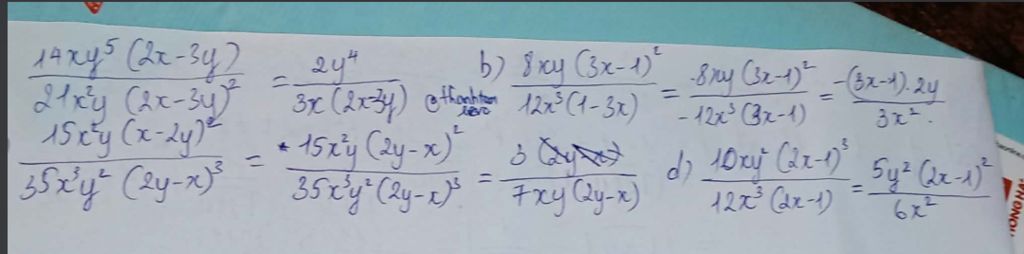 14xy⁵ (2x-3y) / 21x²y (2x-3y)² = 2y⁴ / 3x (2x-3y) b) 8xy (3x-1)² / 12x³ (1-3x) = -8xy (3x-1)² / -12x³ (3x-1) = -(3x-1).2y / 3x².
15x²y (x-2y)² / 35x³y² (2y-x)³ = 15x²y (2y-x)² / 35x³y² (2y-x)³ = 3 / 7xy (2y-x) d) 10xy² (2x-1)³ / 12x³ (2x-1) = 5y² (2x-1)² / 6x²